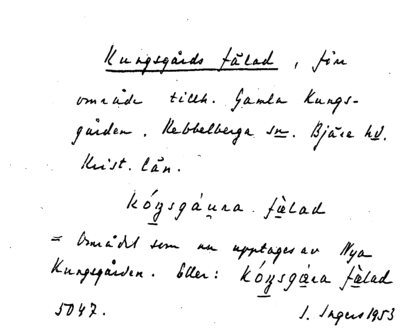 Kungsgårds fälad, för
område tillh. Gamla Kungs-
gården. Rebbelberga sn. Bjäre hd.
Krist. län.
kóŋsgáuna fälad
= Området som nu upptages av Nya
Kungsgården. Eller: kóŋsgära fälad
5047. I. Ingers 1953